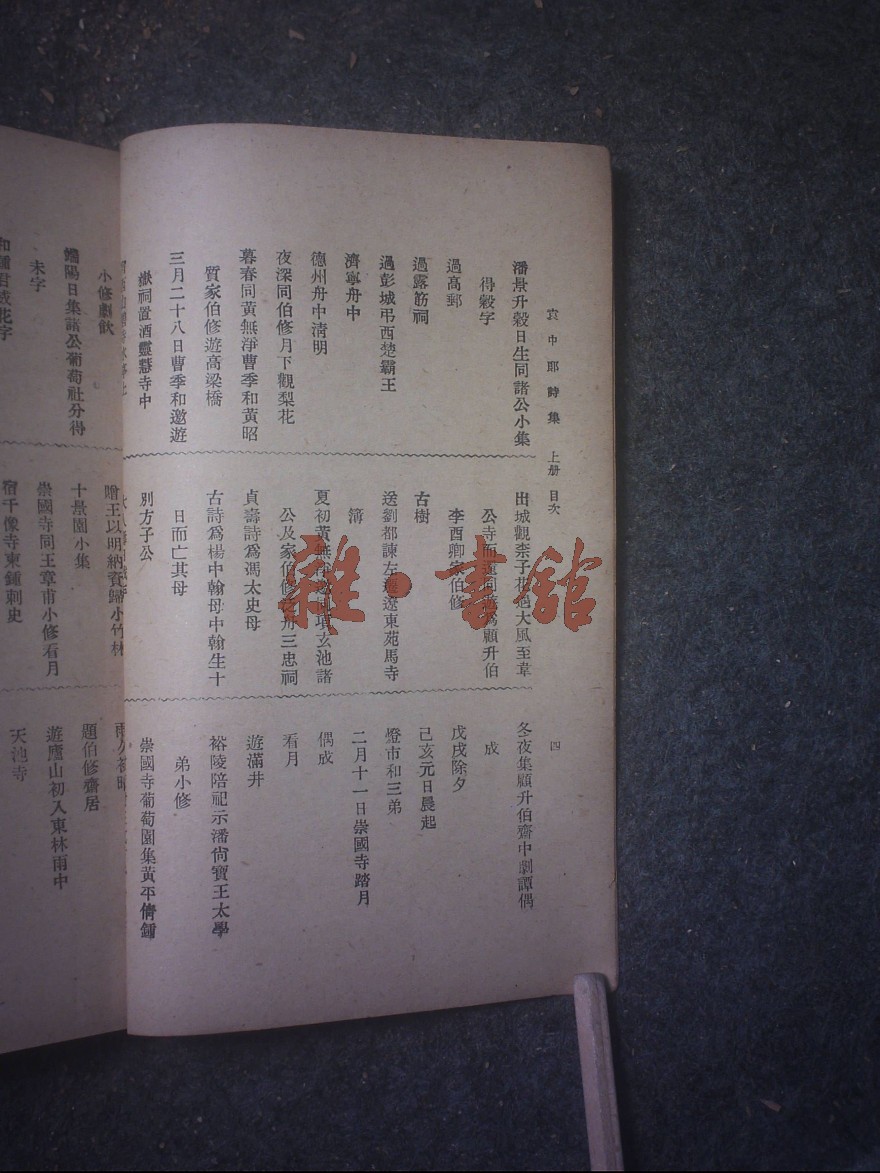 袁中郎詩集 上册 目次
四
潘景升穀日生同諸公小集
得穀字
過高郵
過露筋祠
過彭城弔西楚霸王
濟寧舟中
德州舟中清明
夜深同伯修月下觀梨花
暮春同黃無淨曹季和黃昭
質家伯修遊高梁橋
三月二十八日曹季和邀遊
嶽祠置酒靈慧寺中
出城觀柰子花遇大風至韋
公寺而還同遊為顧升伯
李酉卿家伯修
古樹
送劉都諫左遷遼東苑馬寺
簿
夏初黃無淨邀同項玄池諸
公及家伯修 舟三忠祠
貞壽詩為馮太史母
古詩爲楊中翰母中翰生十
日而亡其母
別方子公
冬夜集顧升伯齋中劇譚偶
成
戊戌除夕
己亥元日晨起
燈市和三弟
二月十一日崇國寺踏月
偶成
看月
遊滿井
裕陵陪祀示潘尙寶王太學
弟小修
崇國寺葡萄園集黃平倩鍾
小修劇飲
陽日集諸公葡萄社分得
未字
君 花字
贈王以明納貲歸小竹林
十景園小集
崇國寺同王章甫小修看月
宿千像寺東鍾刺史
題伯修齋居
遊廬山初入東林雨中
天池寺
雜·書館